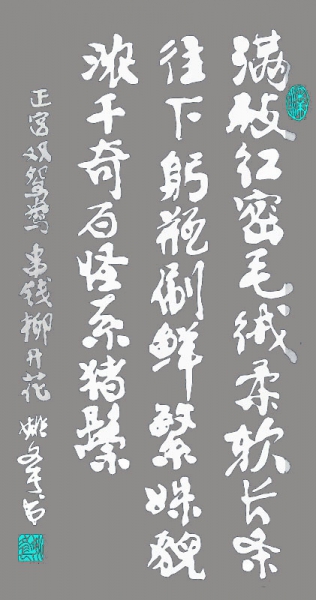 满枝红密毛绒柔软长条
往下躬瓶倒鲜繁姝貌
浓千奇百怪系猪鬃
正宫双鸳鸯 串钱柳开花 姚